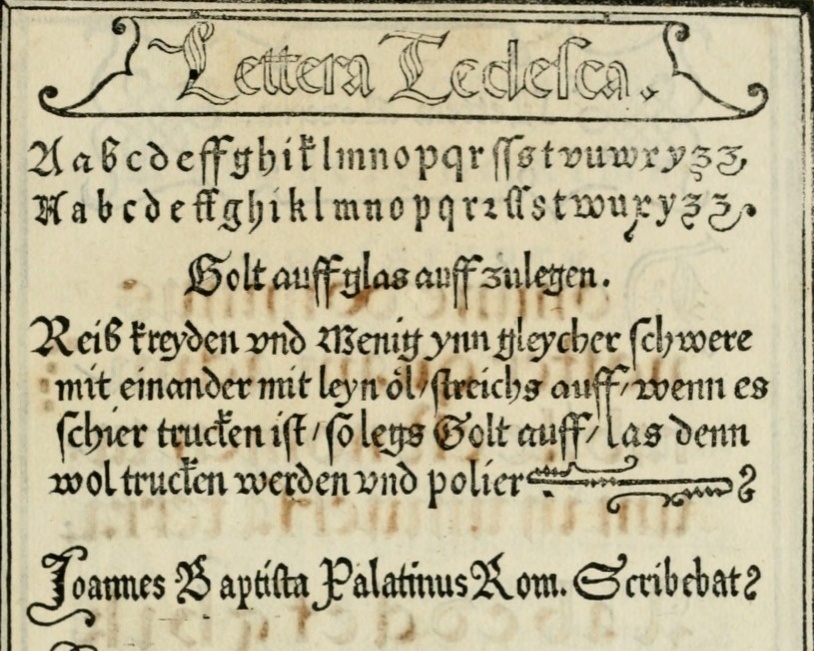 Lettera Tedesca.
A a b c d e ff g h i k l m n o p q r ſſ s t v u w x y z z
A a b c d e ff g h i k l m n o p q r ꝛ ſſ s t w u x y z z
Golt auff glas auff zulegen.
Reiß kreyden vnd Menig ynn gleycher ſchwere
mit einander mit leyn öl / ſtreichs auff / wenn es
ſchier trucken iſt / ſo legs Golt auff / las denn
wol trucken werden vnd polier
Joannes Baptiſta Palatinus Rom. Scribebat